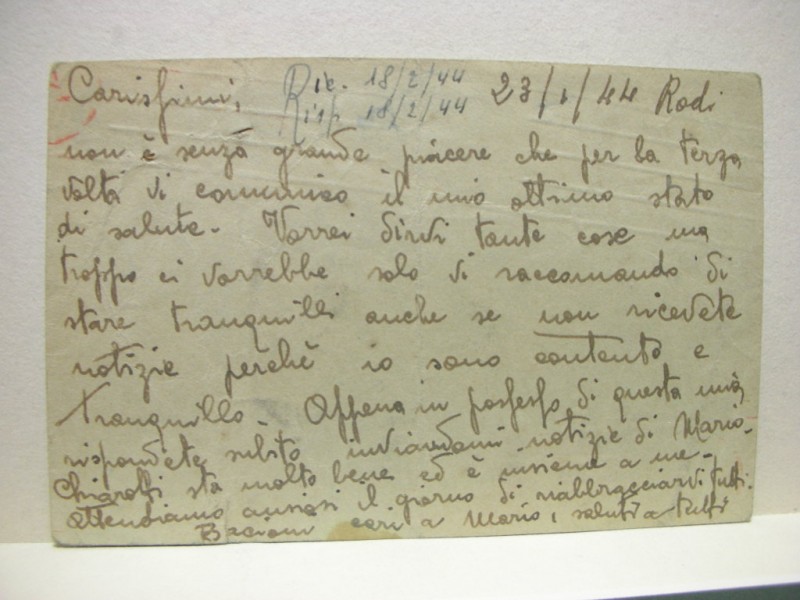 Carissimi, Ric. 18/2/44 23/1/44 Rodi
Risp. 18/2/44
non è senza grande piacere che per la terza
volta vi comunico il mio ottimo stato
di salute. Vorrei dirvi tante cose ma
troppo ci vorrebbe solo vi raccomando di
stare tranquilli anche se non ricevete
notizie perchè io sono contento e
tranquillo. Appena in possesso di questa mia
rispondete subito inviandomi notizie di Mario.
sta molto bene ed è insieme a me.
Attendiamo ansiosi il giorno di riabbracciarvi tutti.
Bacioni cari a Mario, saluti a tutti